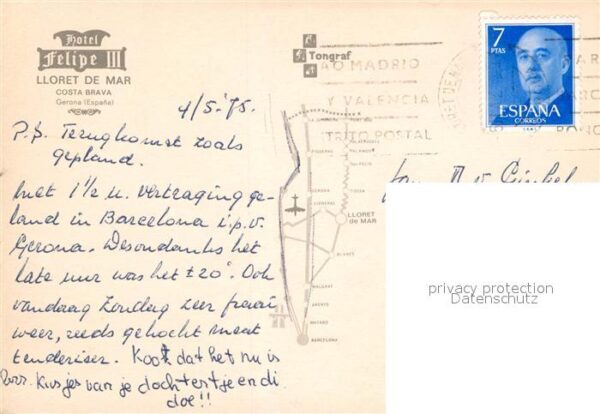 Hotel
Felipe III
LLORET DE MAR
COSTA BRAVA
Gerona (España)
4/5-'75.
P.S. Terugkomst zoals
gepland.
Met 1½ u. vertraging ge-
land in Barcelona i.p.v.
Gerona. Desondanks het
late uur was het ± 20°. Ook
vandaag Zondag zeer fraai
weer, reeds gekocht meat
tenderiser. Kookt dat het nu is
voor. Kusjes van je dochtertje en di
doe!!
Tongraf
GERONA
LLORET
DE MAR
BLANES
MALGRAT
MATARO
BARCELONA
MADRID
Y VALENCIA
TRITO POSTAL
7
PTAS
ESPAÑA
CORREOS
privacy protection
Datenschutz